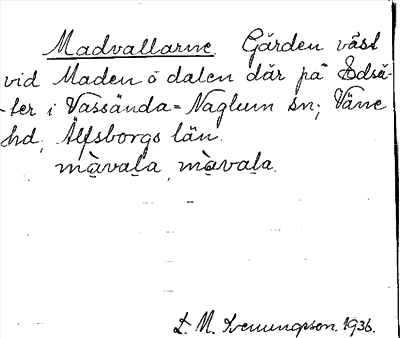 Madvallarne. Gärden väst
vid Maden o dalen där på Edsä-
-ter i Vassända-Naglum sn; Väne
hd; Älfsborgs län.
màvaḷa, màvaḷa.
L. M. Svenungsson. 1936.